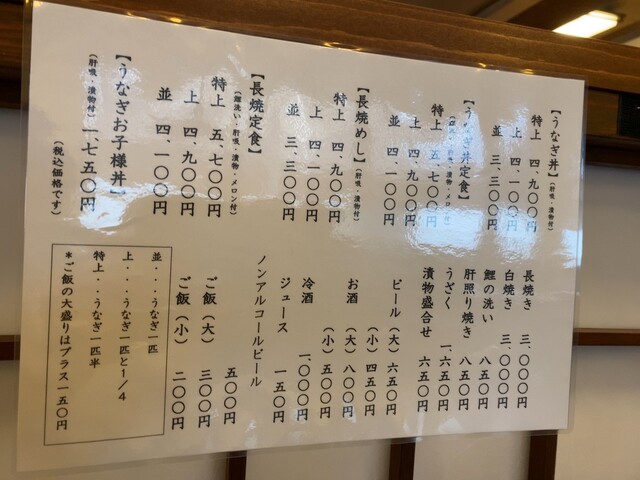 【うなぎ丼】（肝吸・漬物付）
特上 四、九〇〇円
上 四、一〇〇円
並 三、三〇〇円
【うなぎ丼定食】
特上 五、七〇〇円
上 四、九〇〇円
並 四、一〇〇円
【長焼めし】（肝吸・漬物付）
特上 四、九〇〇円
上 四、一〇〇円
並 三、三〇〇円
【長焼定食】
（鯉洗い・肝吸・漬物・メロン付）
特上 五、七〇〇円
上 四、九〇〇円
並 四、一〇〇円
【うなぎお子様丼】
（肝吸・漬物付） 一、七五〇円
（税込価格です）
長焼き 三、〇〇〇円
白焼き 三、〇〇〇円
鯉の洗い 八五〇円
肝照り焼き 八五〇円
うざく 一、六五〇円
漬物盛合せ 六五〇円
ビール（大） 六五〇円
（小） 四五〇円
お酒 （大） 八〇〇円
（小） 五〇〇円
冷酒 一、〇〇〇円
ジュース 一五〇円
ノンアルコールビール
五〇〇円
ご飯（大） 三〇〇円
ご飯（小） 二〇〇円
並・・・うなぎ一匹
上・・・うなぎ一匹と1／4
特上・・・うなぎ一匹半
＊ご飯の大盛りはプラス一五〇円